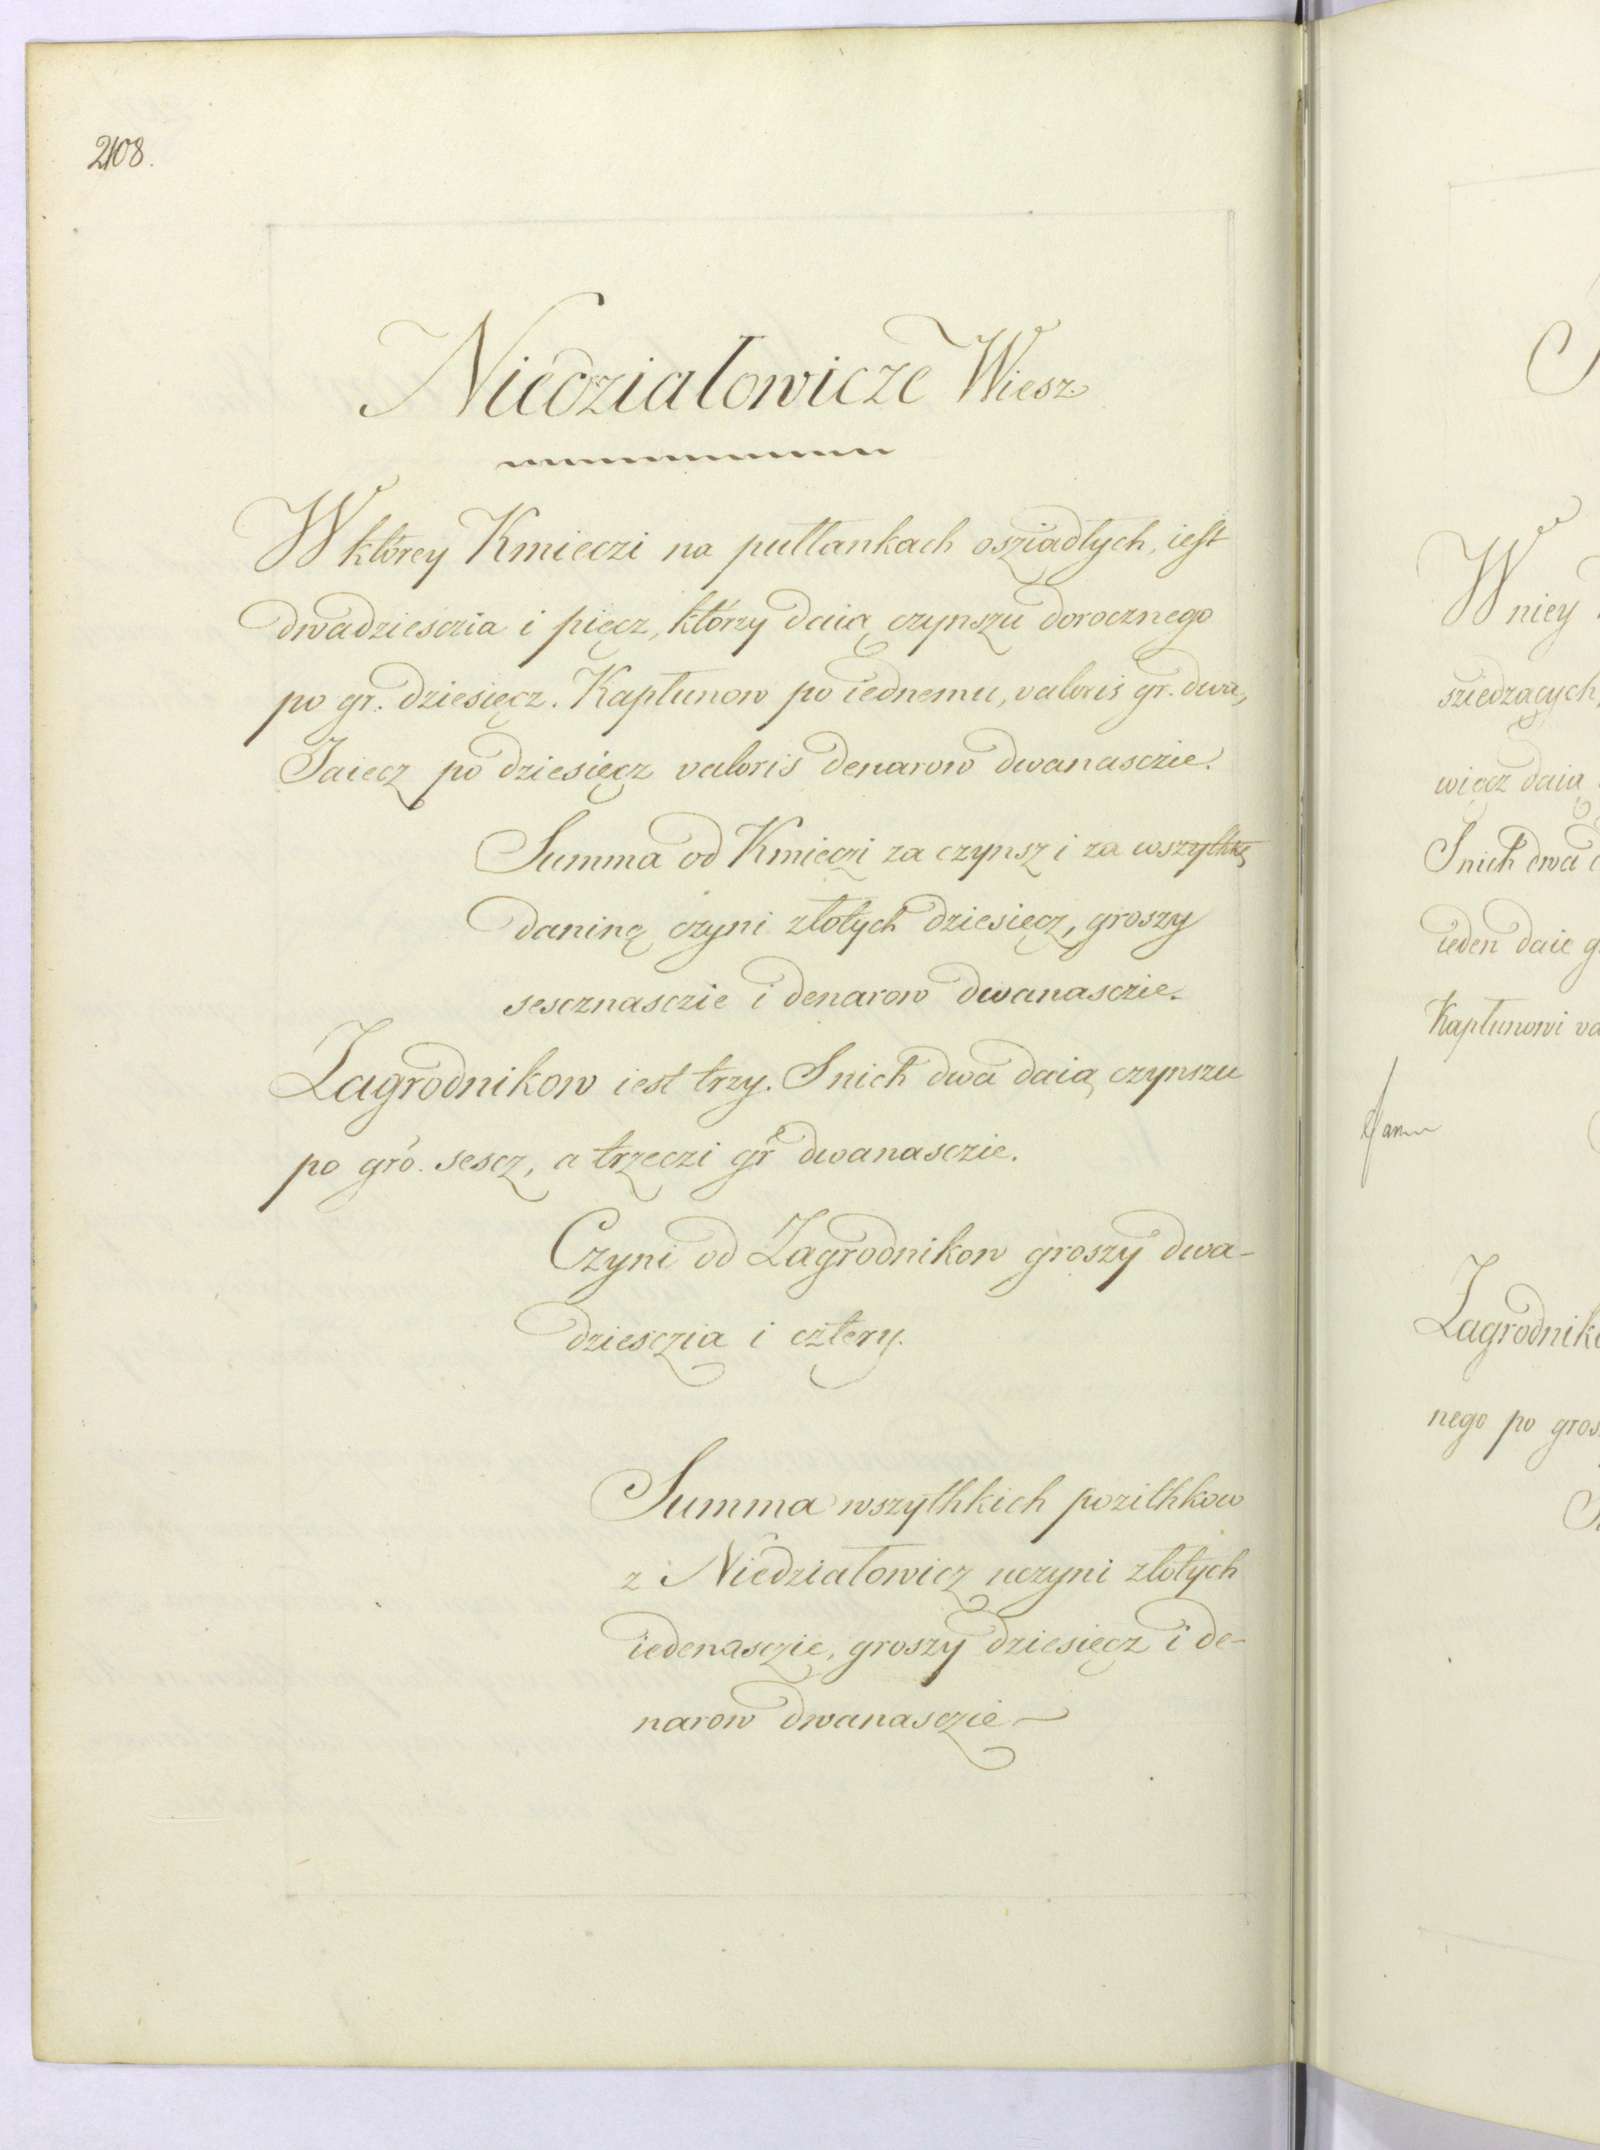 2108.
Niedziałowicze Wiesz
W którey Kmieczi na pułłankach osziadłych, iest
dwadziesczia i pięcz, którzy daią czynszu dorocznego
po gr. dziesięcz. Kapłunow po iednemu, valoris gr. dwa,
Jaiecz po dziesięcz valoris denarow dwanasczie.
Summa od Kmieczi za czynsz i za wszythkę
daninę czyni złotych dziesięcz, groszy
sescznasczie i denarow dwanasczie.
Zagrodnikow iest trzy. Snich dwa daią czynszu
po gro. sescz, a trzeczi gr dwanasczie.
Czyni od Zagrodnikow groszy dwa-
dziesczia i cztery.
Summa wszythkich pozithkow
z Niedziałowicz uczyni złotych
iedenasczie, groszy dziesięcz i de-
narow dwanasczie
W niey
sziedzących,
więcz daią
Snich dwa
ieden daie g
Kapłunowi va
Zagrodnik
nego po gros